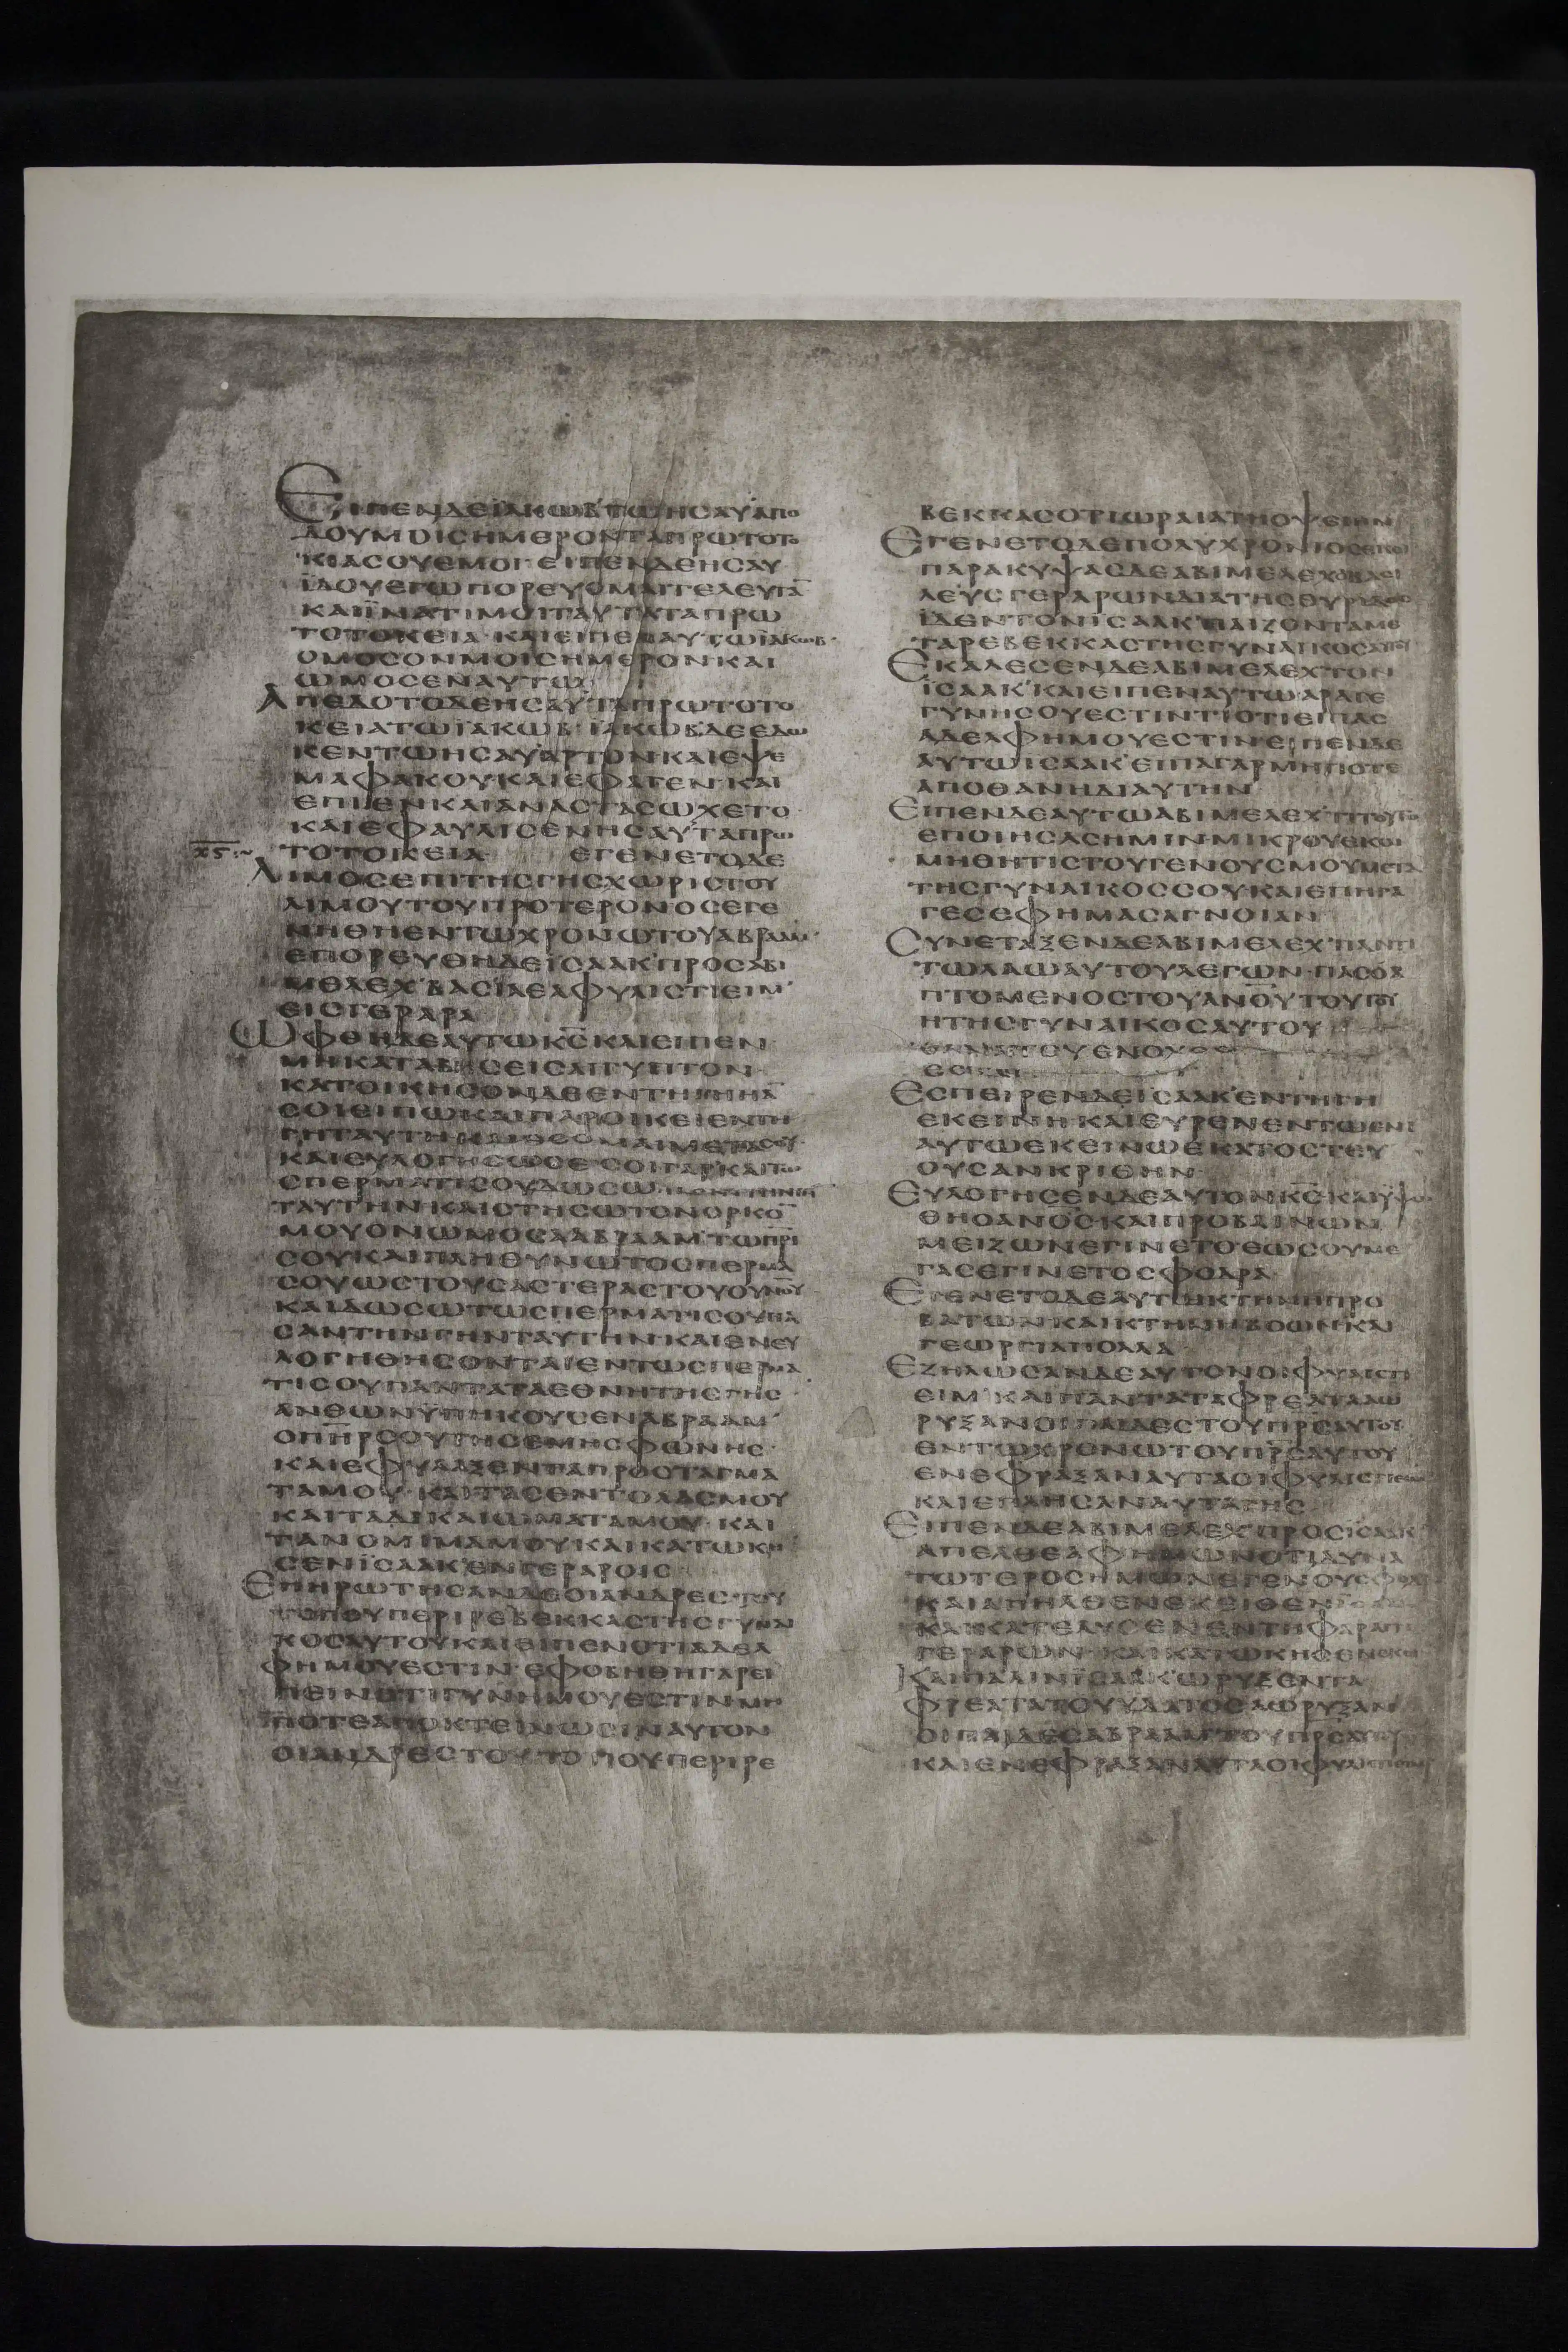 ΕΙΠΕΝΔΕΪΑΚΩΒ'ΤΩΗΣΑΥ'ΑΠΟ
ΔΟΥΜΟΙΣΗΜΕΡΟΝΤΑΠΡΩΤΟΤΟ
ΚΙΑΣΟΥΕΜΟΙ· ΕΙΠΕΝΔΕΗΣΑΥ·
ΪΔΟΥΕΓΩΠΟΡΕΥΟΜΑΙΤΕΛΕΥΤΑ̅
ΚΑΙΪΝΑΤΙΜΟΙΤΑΥΤΑΤΑΠΡΩ
ΤΟΤΟΚΕΙΑ· ΚΑΙΕΙΠΕΝΑΥΤΩΪΑΚΩΒ·
ΟΜΟΣΟΝΜΟΙΣΗΜΕΡΟΝΚΑΙ
ΩΜΟΣΕΝΑΥΤΩ·
ΑΠΕΔΟΤΟΔΕΗΣΑΥ'ΤΑΠΡΩΤΟΤΟ
ΚΕΙΑΤΩΪΑΚΩΒ· ΪΑΚΩΒ'ΔΕΕΔΩ
ΚΕΝΤΩΗΣΑΥ'ΑΡΤΟΝΚΑΙΕΨΕ
ΜΑΦΑΚΟΥΚΑΙΕΦΑΓΕΝ·ΚΑΙ
ΕΠΙΕΝΚΑΙΑΝΑΣΤΑΣΩΧΕΤΟ·
ΚΑΙΕΦΑΥΛΙΣΕΝΗΣΑΥ'ΤΑΠΡΩ
ΤΟΤΟΚΕΙΑ· ΕΓΕΝΕΤΟΔΕ
ΛΙΜΟΣΕΠΙΤΗΣΓΗΣΧΩΡΙΣΤΟΥ
ΛΙΜΟΥΤΟΥΠΡΟΤΕΡΟΝΟΣΕΓΕ
ΝΗΘΗΕΝΤΩΧΡΟΝΩΤΟΥΑΒΡΑΑΜ·
ΕΠΟΡΕΥΘΗΔΕΪΣΑΑΚ'ΠΡΟΣΑΒΙ
ΜΕΛΕΧ'ΒΑΣΙΛΕΑΦΥΛΙΣΤΙΕΙΜ'
ΕΙΣΓΕΡΑΡΑ
ΩΦΘΗΔΕΑΥΤΩΚ̅Σ̅ΚΑΙΕΙΠΕΝ·
ΜΗΚΑΤΑΒΗΣΕΙΣΑΙΓΥΠΤΟΝ·
ΚΑΤΟΙΚΗΣΟΝΔΕΕΝΤΗΓΗΗΑ̅
ΣΟΙΕΙΠΩΚΑΙΠΑΡΟΙΚΕΙΕΝΤΗ
ΓΗΤΑΥΤΗΚΑΙΕΣΟΜΑΙΜΕΤΑΣΟΥ·
ΚΑΙΕΥΛΟΓΗΣΩΣΕ·ΣΟΙΓΑΡΚΑΙΤΩ
ΣΠΕΡΜΑΤΙΣΟΥΔΩΣΩ
ΤΑΥΤΗΝΚΑΙΣΤΗΣΩΤΟΝΟΡΚΟ̅
ΜΟΥΟΝΩΜΟΣΑΑΒΡΑΑΜ'ΤΩΠ̅Ρ̅Ι̅
ΣΟΥΚΑΙΠΛΗΘΥΝΩΤΟΣΠΕΡΜΑ
ΣΟΥΩΣΤΟΥΣΑΣΤΕΡΑΣΤΟΥΟΥΝΟΥ
ΚΑΙΔΩΣΩΤΩΣΠΕΡΜΑΤΙΣΟΥΠΑ
ΣΑΝΤΗΝΓΗΝΤΑΥΤΗΝΚΑΙΕΝΕΥ
ΛΟΓΗΘΗΣΟΝΤΑΙΕΝΤΩΣΠΕΡΜΑ
ΤΙΣΟΥΠΑΝΤΑΤΑΕΘΝΗΤΗΣΓΗΣ·
ΑΝΘΩΝΫΠΗΚΟΥΣΕΝΑΒΡΑΑΜ'
ΟΠ̅Η̅Ρ̅ΣΟΥΤΗΣΕΜΗΣΦΩΝΗΣ·
ΚΑΙΕΦΥΛΑΞΕΝΤΑΠΡΟΣΤΑΓΜΑ
ΤΑΜΟΥ·ΚΑΙΤΑΣΕΝΤΟΛΑΣΜΟΥ
ΚΑΙΤΑΔΙΚΑΙΩΜΑΤΑΜΟΥ·ΚΑΙ
ΤΑΝΟΜΙΜΑΜΟΥΚΑΙΚΑΤΩΚΗ
ΣΕΝΪΣΑΑΚ'ΕΝΓΕΡΑΡΟΙΣ·
ΕΠΗΡΩΤΗΣΑΝΔΕΟΙΑΝΔΡΕΣ·ΤΟΥ
ΤΟΠΟΥΠΕΡΙΡΕΒΕΚΚΑΣΤΗΣΓΥΝΑΙ
ΚΟΣΑΥΤΟΥΚΑΙΕΙΠΕΝΟΤΙΑΔΕΛ
ΦΗΜΟΥΕΣΤΙΝ·ΕΦΟΒΗΘΗΓΑΡΕΙ
ΠΕΙΝΟΤΙΓΥΝΗΜΟΥΕΣΤΙΝΜΗ
ΠΟΤΕΑΠΟΚΤΕΙΝΩΣΙΝΑΥΤΟΝ
ΟΙΑΝΔΡΕΣΤΟΥΤΟΠΟΥΠΕΡΙΡΕ
ΒΕΚΚΑΣΟΤΙΩΡΑΙΑΤΗΟΨΕΙΗΝ
ΕΓΕΝΕΤΟΔΕΠΟΛΥΧΡΟΝΙΟΣΕΚΕΙ
ΠΑΡΑΚΥΨΑΣΔΕΑΒΙΜΕΛΕΧΟΒΑΣΙ
ΛΕΥΣΓΕΡΑΡΩΝΔΙΑΤΗΣΘΥΡΙΔΟΣ
ΪΔΕΝΤΟΝΪΣΑΑΚ'ΠΑΙΖΟΝΤΑΜΕ
ΤΑΡΕΒΕΚΚΑΣΤΗΣΓΥΝΑΙΚΟΣΑΥΤΟΥ
ΕΚΑΛΕΣΕΝΔΕΑΒΙΜΕΛΕΧ'ΤΟΝ
ΪΣΑΑΚ'ΚΑΙΕΙΠΕΝΑΥΤΩ·ΑΡΑΓΕ
ΓΥΝΗΣΟΥΕΣΤΙΝΤΙΟΤΙΕΙΠΑΣ
ΑΔΕΛΦΗΜΟΥΕΣΤΙΝ·ΕΙΠΕΝΔΕ
ΑΥΤΩΪΣΑΑΚ'ΕΙΠΑΓΑΡΜΗΠΟΤΕ
ΑΠΟΘΑΝΗΔΙΑΥΤΗΝ
ΕΙΠΕΝΔΕΑΥΤΩΑΒΙΜΕΛΕΧ'ΤΙΤΟΥΤΟ
ΕΠΟΙΗΣΑΣΗΜΙΝ·ΜΙΚΡΟΥΕΚΟΙ
ΜΗΘΗΤΙΣΤΟΥΓΕΝΟΥΣΜΟΥΜΕΤΑ
ΤΗΣΓΥΝΑΙΚΟΣΣΟΥΚΑΙΕΠΗΓΑ
ΓΕΣΕΦΗΜΑΣΑΓΝΟΙΑΝ
ΣΥΝΕΤΑΞΕΝΔΕΑΒΙΜΕΛΕΧ'ΠΑΝΤΙ
ΤΩΛΑΩΑΥΤΟΥΛΕΓΩΝ·ΠΑΣΟΑ
ΠΤΟΜΕΝΟΣΤΟΥΑΝ̅Ο̅Υ̅ΤΟΥΤΟΥ
ΗΤΗΣΓΥΝΑΙΚΟΣΑΥΤΟΥ
ΘΑΝΑΤΟΥΕΝΟΧΟΣ
ΕΣΤΑΙ
ΕΣΠΕΙΡΕΝΔΕΪΣΑΑΚ'ΕΝΤΗΓΗ
ΕΚΕΙΝΗΚΑΙΕΥΡΕΝΕΝΤΩΕΝΙ
ΑΥΤΩΕΚΕΙΝΩΕΚΑΤΟΣΤΕΥ
ΟΥΣΑΝΚΡΙΘΗΝ·
ΕΥΛΟΓΗΣΕΝΔΕΑΥΤΟΝΚ̅Σ̅·ΚΑΙΫΨΩ
ΘΗΟΑΝ̅Ο̅Σ̅·ΚΑΙΠΡΟΒΑΙΝΩΝ
ΜΕΙΖΩΝΕΓΙΝΕΤΟΕΩΣΟΥΜΕ
ΓΑΣΕΓΙΝΕΤΟΣΦΟΔΡΑ·
ΕΓΕΝΕΤΟΔΕΑΥΤΩΚΤΗΝΗΠΡΟ
ΒΑΤΩΝΚΑΙΚΤΗΝΗΒΟΩΝΚΑΙ
ΓΕΩΡΓΙΑΠΟΛΛΑ·
ΕΖΗΛΩΣΑΝΔΕΑΥΤΟΝΟΙΦΥΛΙΣΤΙ
ΕΙΜ'ΚΑΙΠΑΝΤΑΤΑΦΡΕΑΤΑΑΩ
ΡΥΞΑΝΟΙΠΑΙΔΕΣΤΟΥΠ̅Ρ̅Σ̅ΑΥΤΟΥ
ΕΝΤΩΧΡΟΝΩΤΟΥΠ̅Ρ̅Σ̅ΑΥΤΟΥ
ΕΝΕΦΡΑΞΑΝΑΥΤΑΟΙΦΥΛΙΣΤΙΕΙΜ
ΚΑΙΕΠΛΗΣΑΝΑΥΤΑΓΗΣ
ΕΙΠΕΝΔΕΑΒΙΜΕΛΕΧ'ΠΡΟΣΪΣΑΑΚ'
ΑΠΕΛΘΕΑΦΗΜΩΝΟΤΙΔΥΝΑ
ΤΩΤΕΡΟΣΗΜΩΝΕΓΕΝΟΥΣΦΟΔΡΑ
ΚΑΙΑΠΗΛΘΕΝΕΚΕΙΘΕΝ
ΚΑΙΚΑΤΕΛΥΣΕΝΕΝΤΗΦΑΡΑΓΓΙ
ΓΕΡΑΡΩΝ·ΚΑΙΚΑΤΩΚΗΣΕΝΕΚΕΙ
ΚΑΙΠΑΛΙΝΪΣΑΑΚ'ΩΡΥΞΕΝΤΑ
ΦΡΕΑΤΑΤΟΥΥΔΑΤΟΣΑΩΡΥΞΑΝ
ΟΙΠΑΙΔΕΣΑΒΡΑΑΜ'ΤΟΥΠ̅Ρ̅Σ̅ΑΥΤΟΥ
ΚΑΙΕΝΕΦΡΑΞΑΝΑΥΤΑΟΙΦΥΛΙΣΤΙΕΙΜ